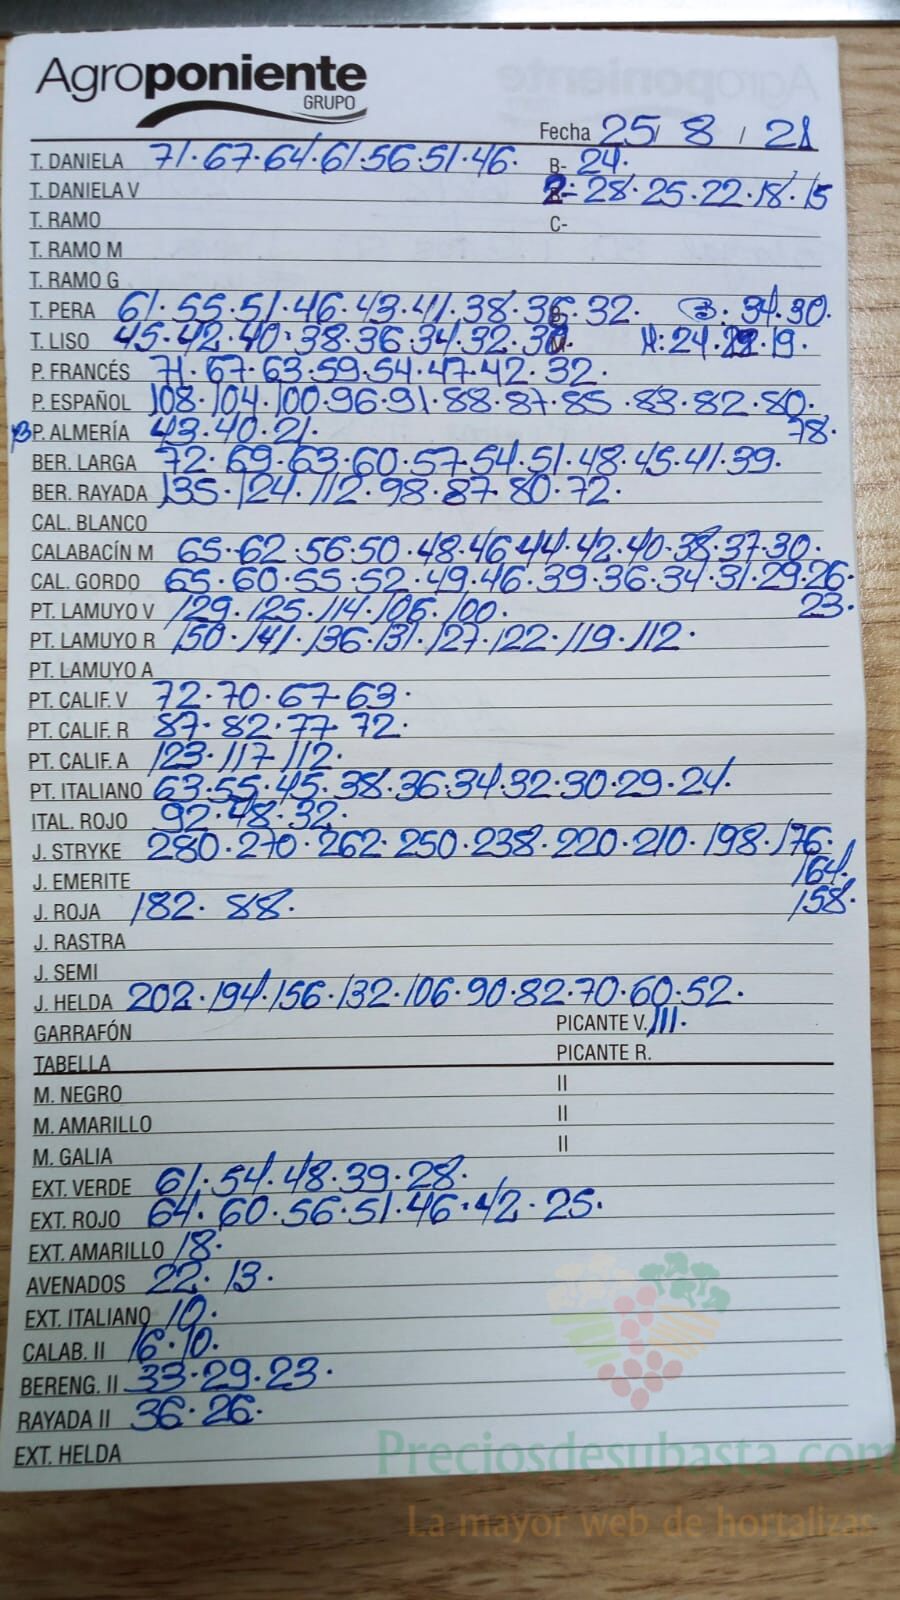 Agroponiente
GRUPO
Fecha 25/ 8 / 21
T. DANIELA 71·67·64·61·56·51·46· B- 24·
T. DANIELA V 2- 28·25·22·18·15
T. RAMO C-
T. RAMO M
T. RAMO G
T. PERA 61·55·51·46·43·41·38·36·32· B· 34·30·
T. LISO 45·42·40·38·36·34·32·30 M:24·22·19·
P. FRANCÉS 71·67·63·59·54·47·42·32·
P. ESPAÑOL 108·104·100·96·91·88·87·85·83·82·80·
B P. ALMERÍA 43·40·21· 78·
BER. LARGA 72·69·63·60·57·54·51·48·45·41·39·
BER. RAYADA 135·124·112·98·87·80·72·
CAL. BLANCO
CALABACÍN M 65·62·56·50·48·46·44·42·40·38·37·30·
CAL. GORDO 65·60·55·52·49·46·39·36·34·31·29·26·
PT. LAMUYO V 129·125·114·106·100· 23·
PT. LAMUYO R 150·141·136·131·127·122·119·112·
PT. LAMUYO A
PT. CALIF. V 72·70·67·63·
PT. CALIF. R 87·82·77·72·
PT. CALIF. A 123·117·112·
PT. ITALIANO 63·55·45·38·36·34·32·30·29·24·
ITAL. ROJO 92·48·32·
J. STRYKE 280·270·262·250·238·220·210·198·176·
J. EMERITE 164·
J. ROJA 182· 88· 158·
J. RASTRA
J. SEMI
J. HELDA 202·194·156·132·106·90·82·70·60·52·
GARRAFÓN PICANTE V. 111·
TABELLA PICANTE R.
M. NEGRO II
M. AMARILLO II
M. GALIA II
EXT. VERDE 61·54·48·39·28·
EXT. ROJO 64·60·56·51·46·42·25·
EXT. AMARILLO 18·
AVENADOS 22·13·
EXT. ITALIANO 10·
CALAB. II 16·10·
BERENG. II 33·29·23·
RAYADA II 36·26·
EXT. HELDA
Preciosdesubasta.com
La mayor web de hortalizas